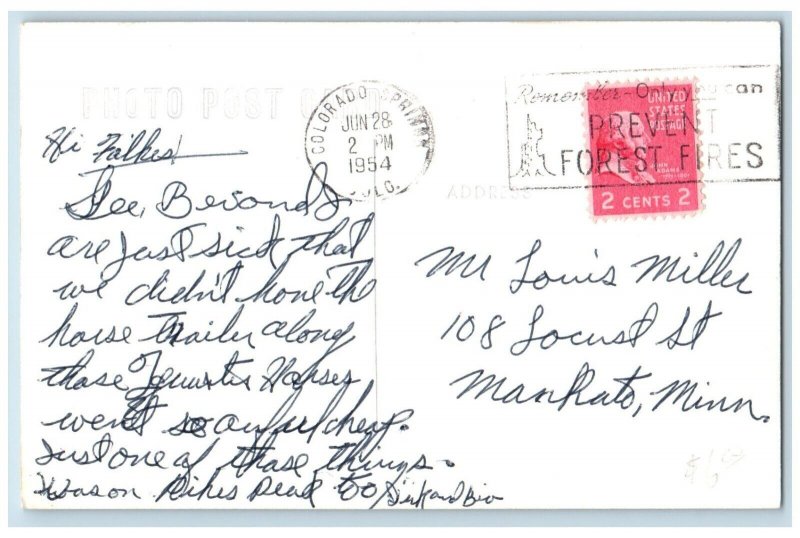 PHOTO POST CARD
Hi Folkes
Lee, 
are just sick that
we didn't have the
horse trailer along
those Quarter Horses
went so awful cheap.
Just one of those things.
Was on Pikes Peak too
COLORADO SPRINGS
JUN 28
2 PM
1954
COLO.
Remember-Only you can
PREVENT
FOREST FIRES
UNITED
STATES
POSTAGE
JOHN
ADAMS
2 CENTS 2
ADDRESS
Mr Louis Miller
108 Locust St
Mankato, Minn.